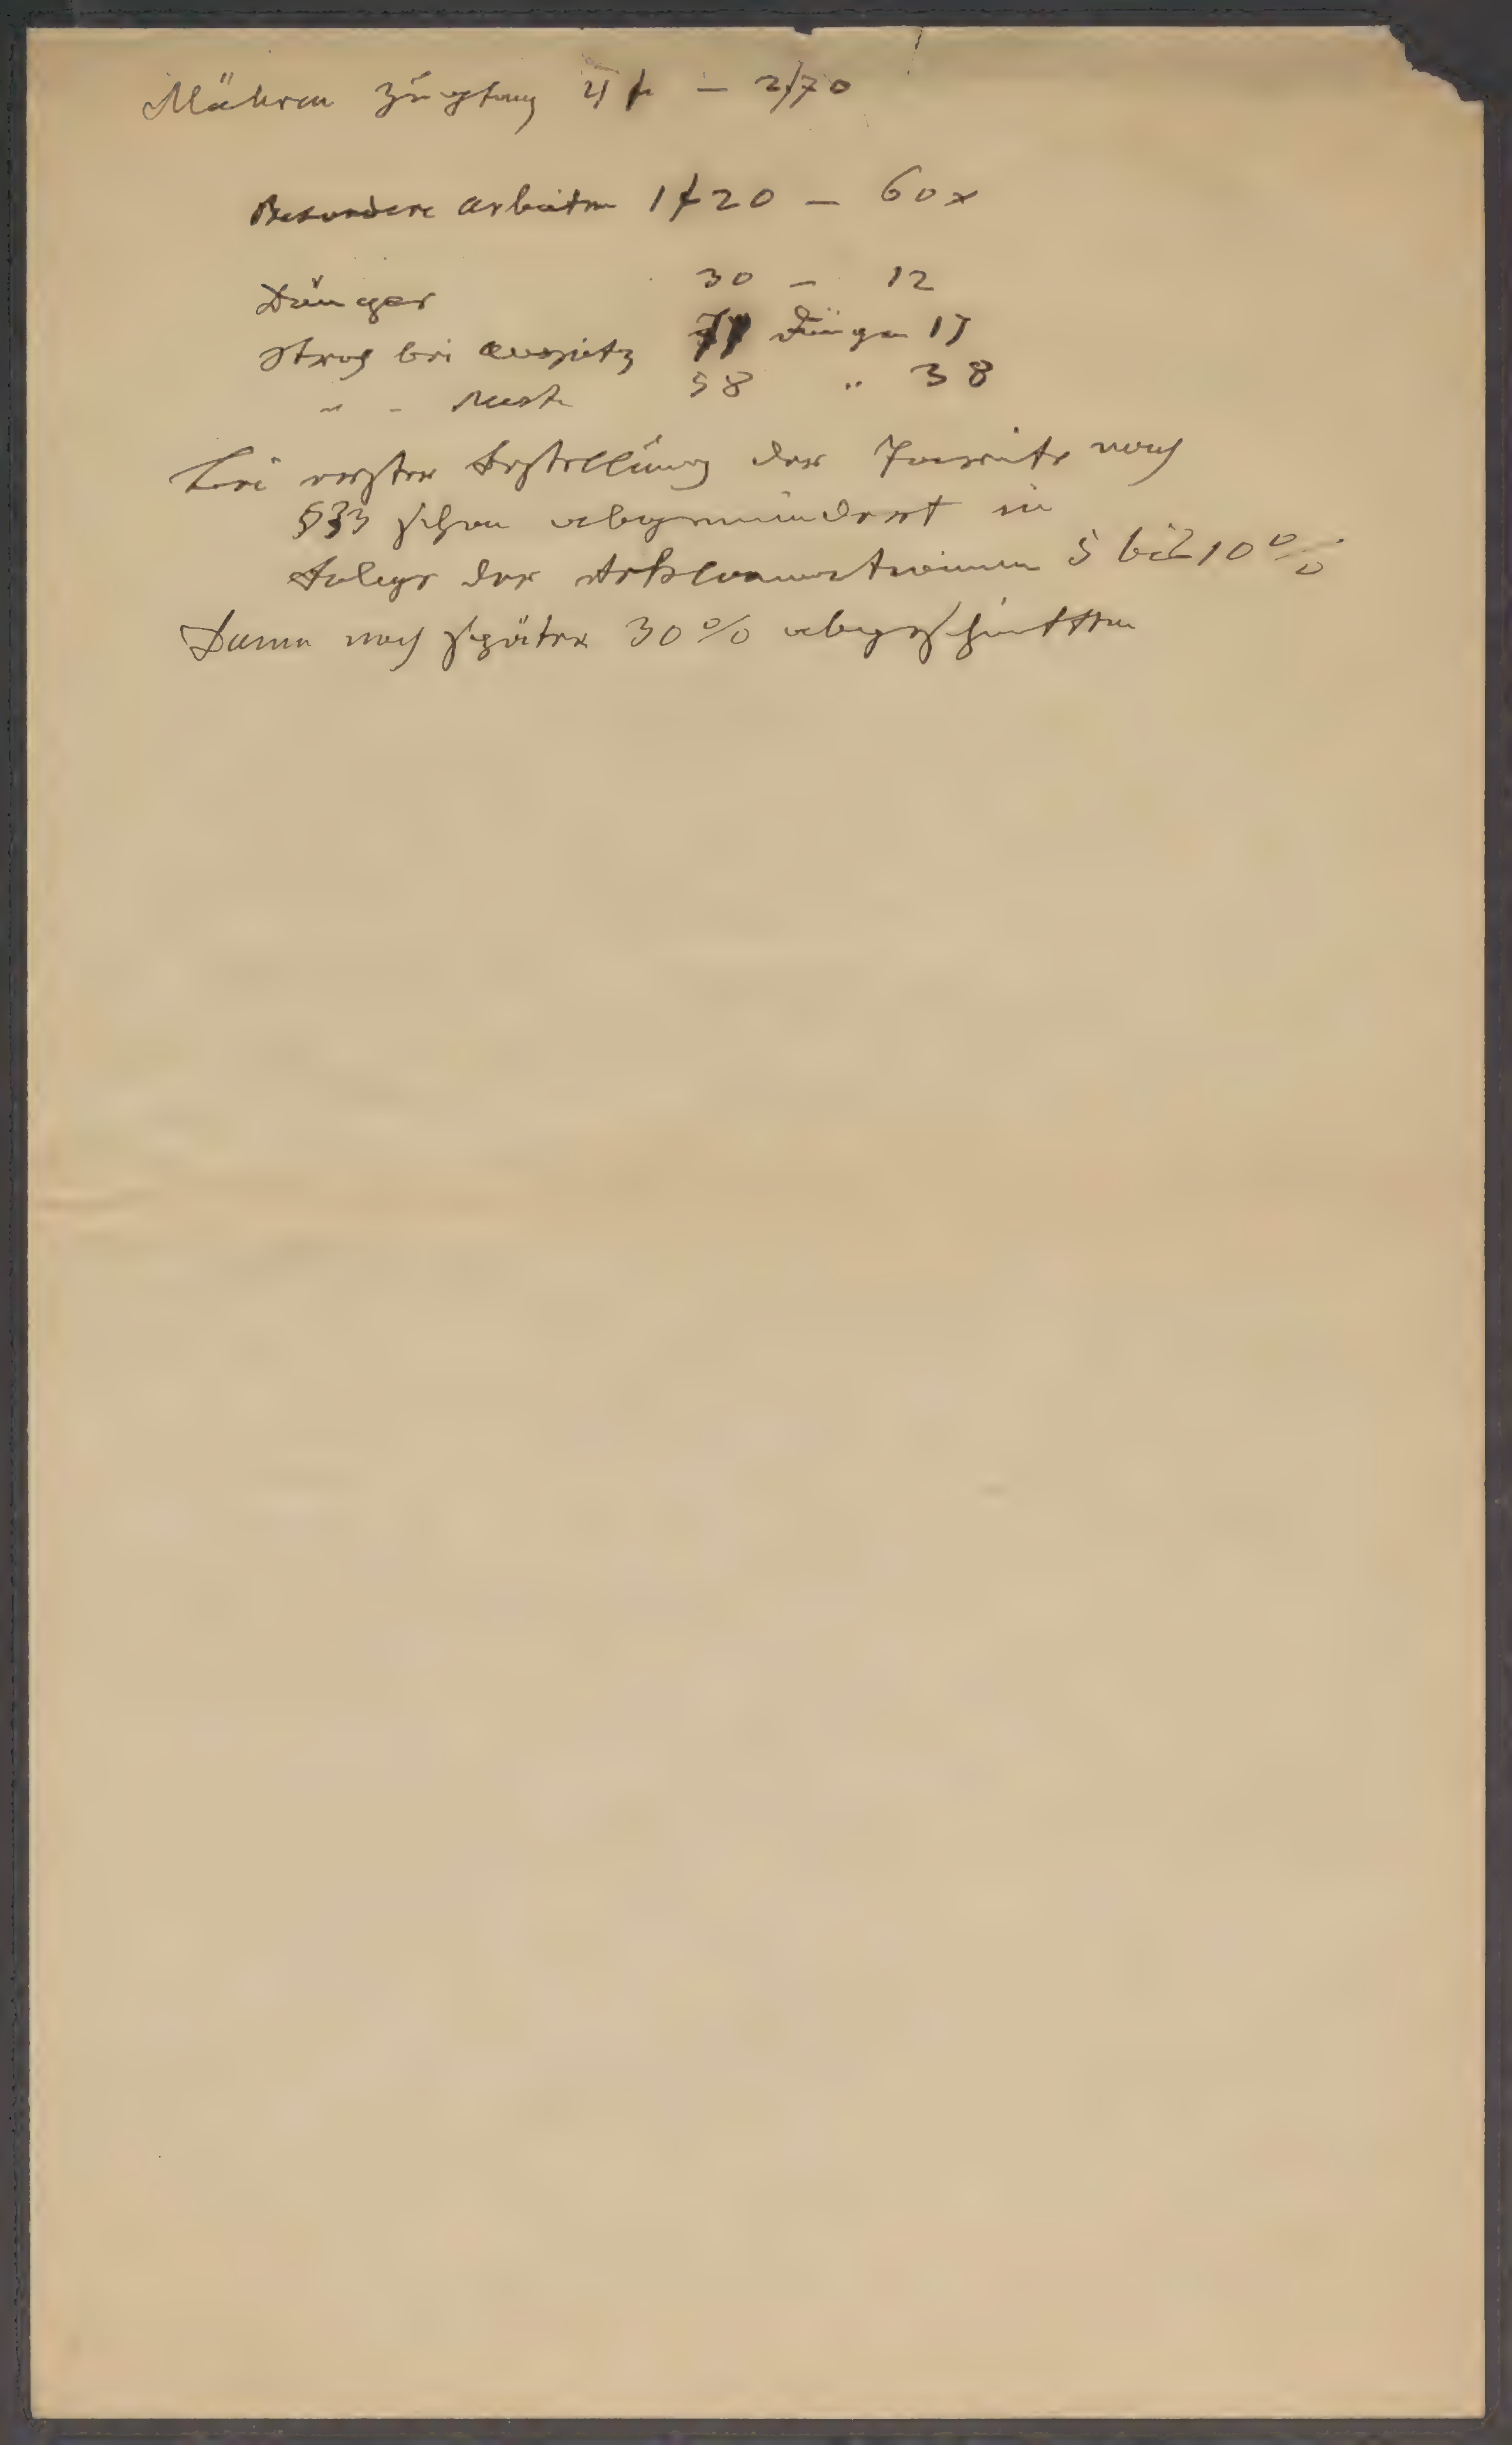 Mähren Zugtag 4 f — 2f70
Besondere Arbeiten 1f20 — 60x
Dünger 30 — 12
Stroh bei Auspitz Dünger 15
" - 58 " 38
bei erster Erstellung der nach
§33 schon abgemindert in
Folge der Reklamationen 5 bis 10%
Dann noch später 30% abgeschnitten